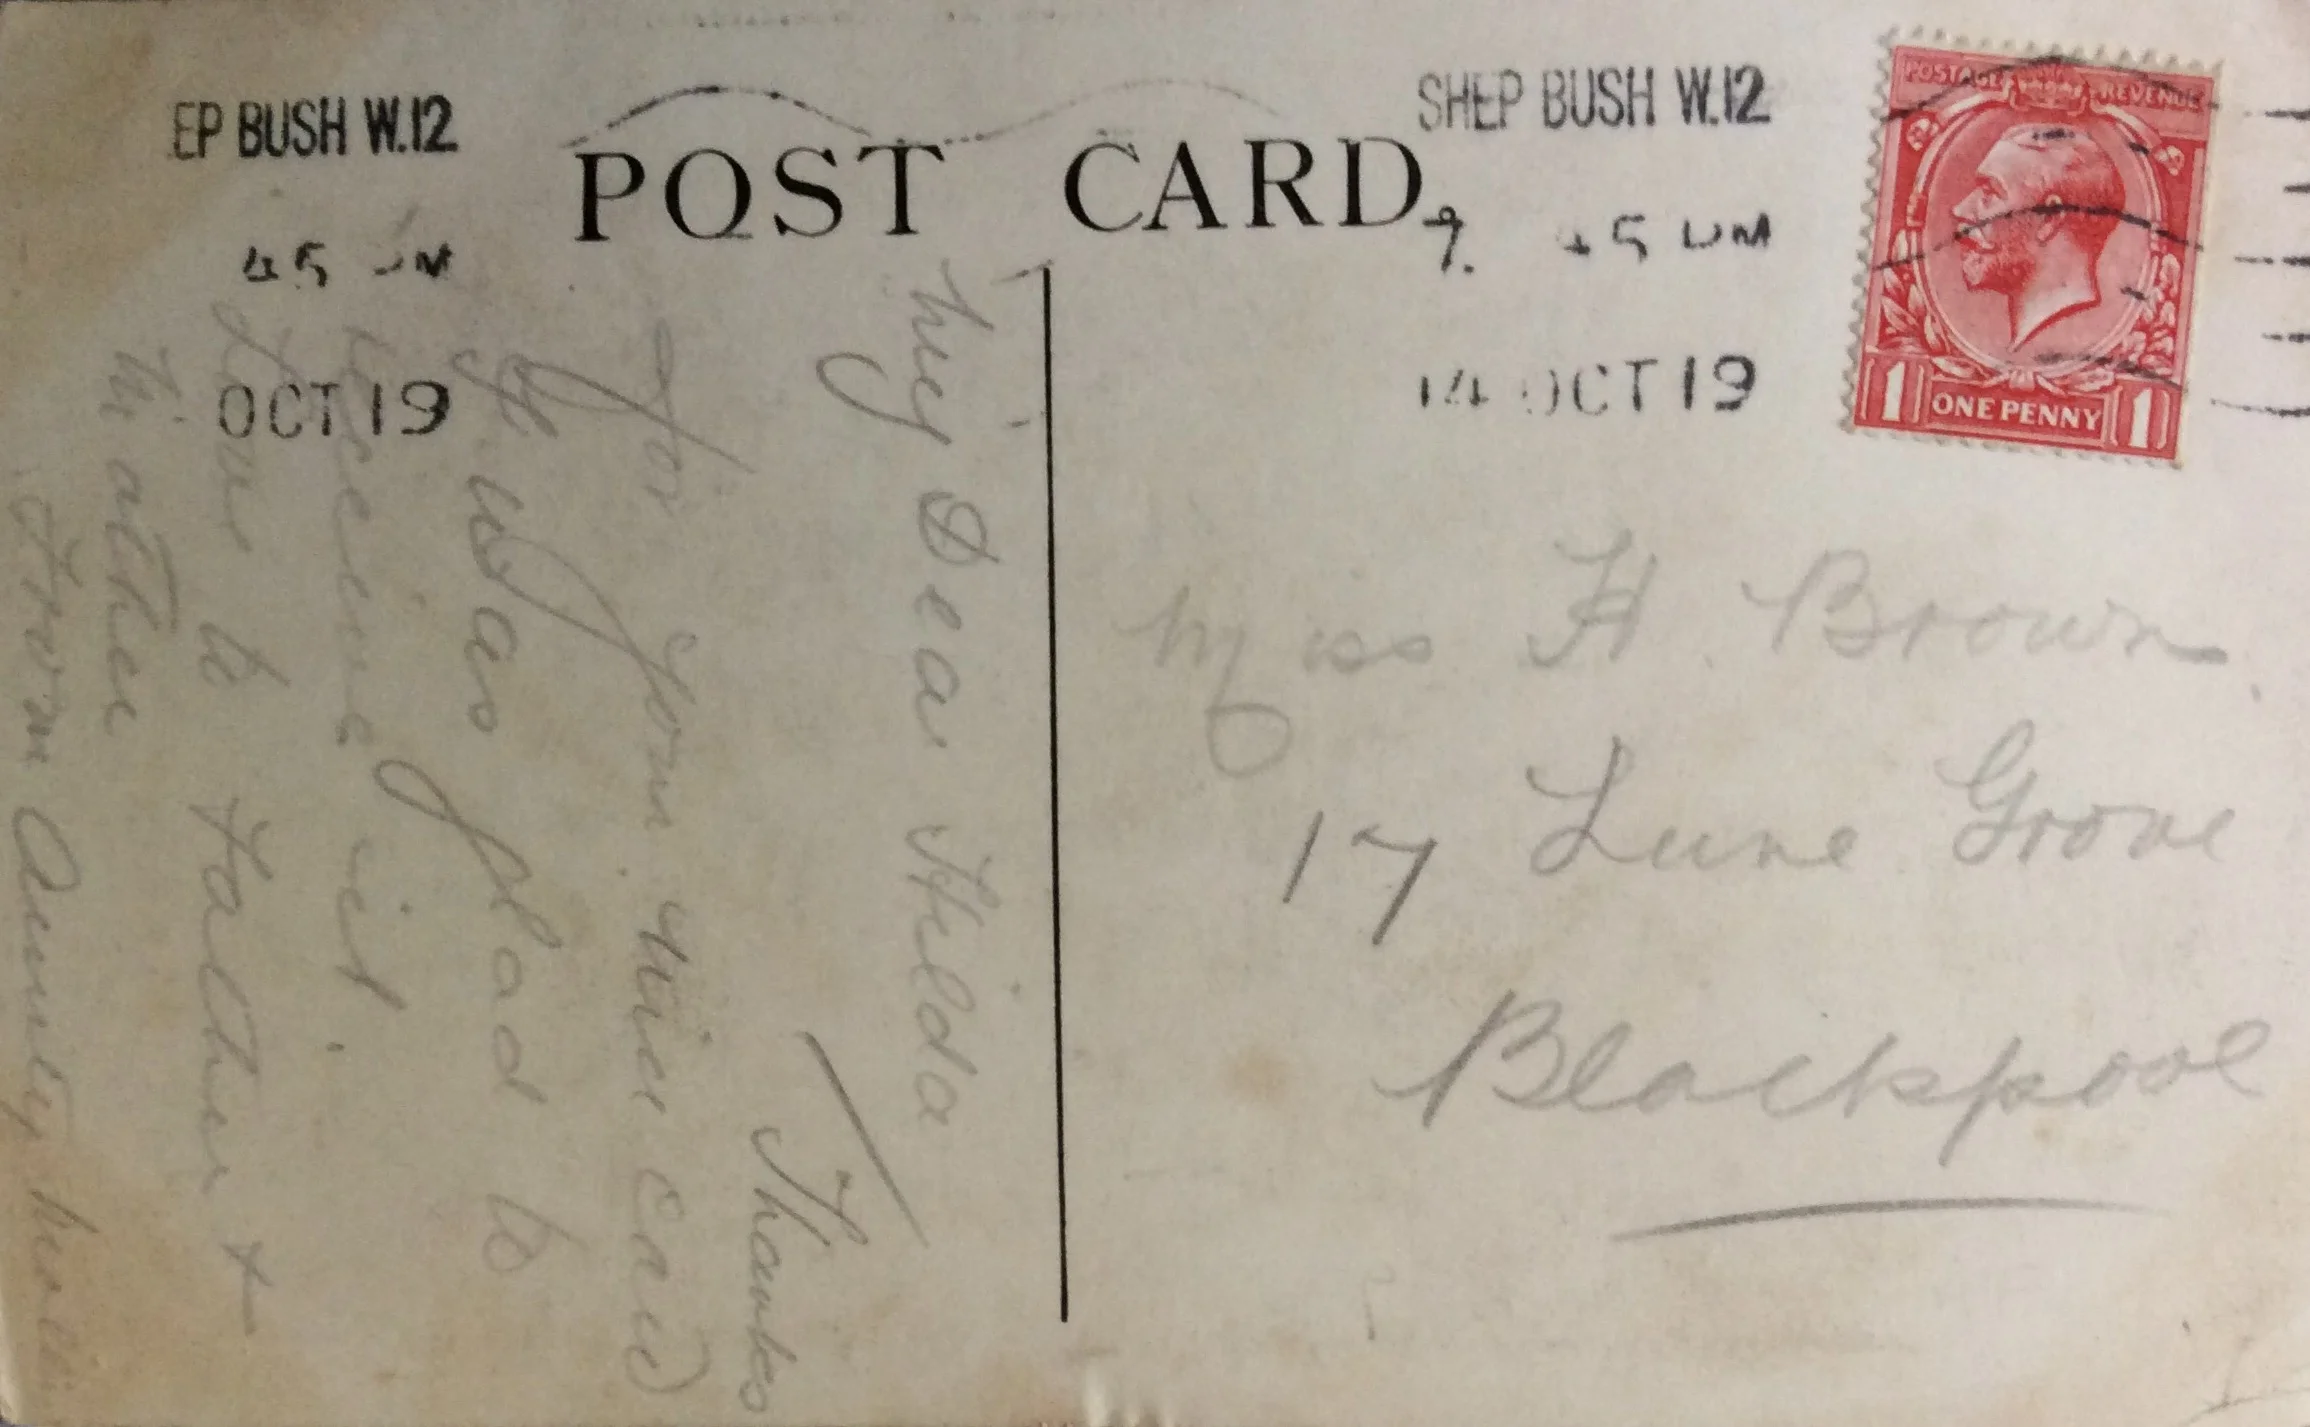 EP BUSH W.12
45 M
OCT 19
POST CARD
SHEP BUSH W.12
7. 45 PM
14 OCT 19
POSTAGE REVENUE
1 ONE PENNY 1
Miss H. Brown
17 Lune Grove
Blackpool
My Dear Hilda
Thanks
for your nice card
I was glad to
receive it.
Love to Father +
Mother
From Aunty